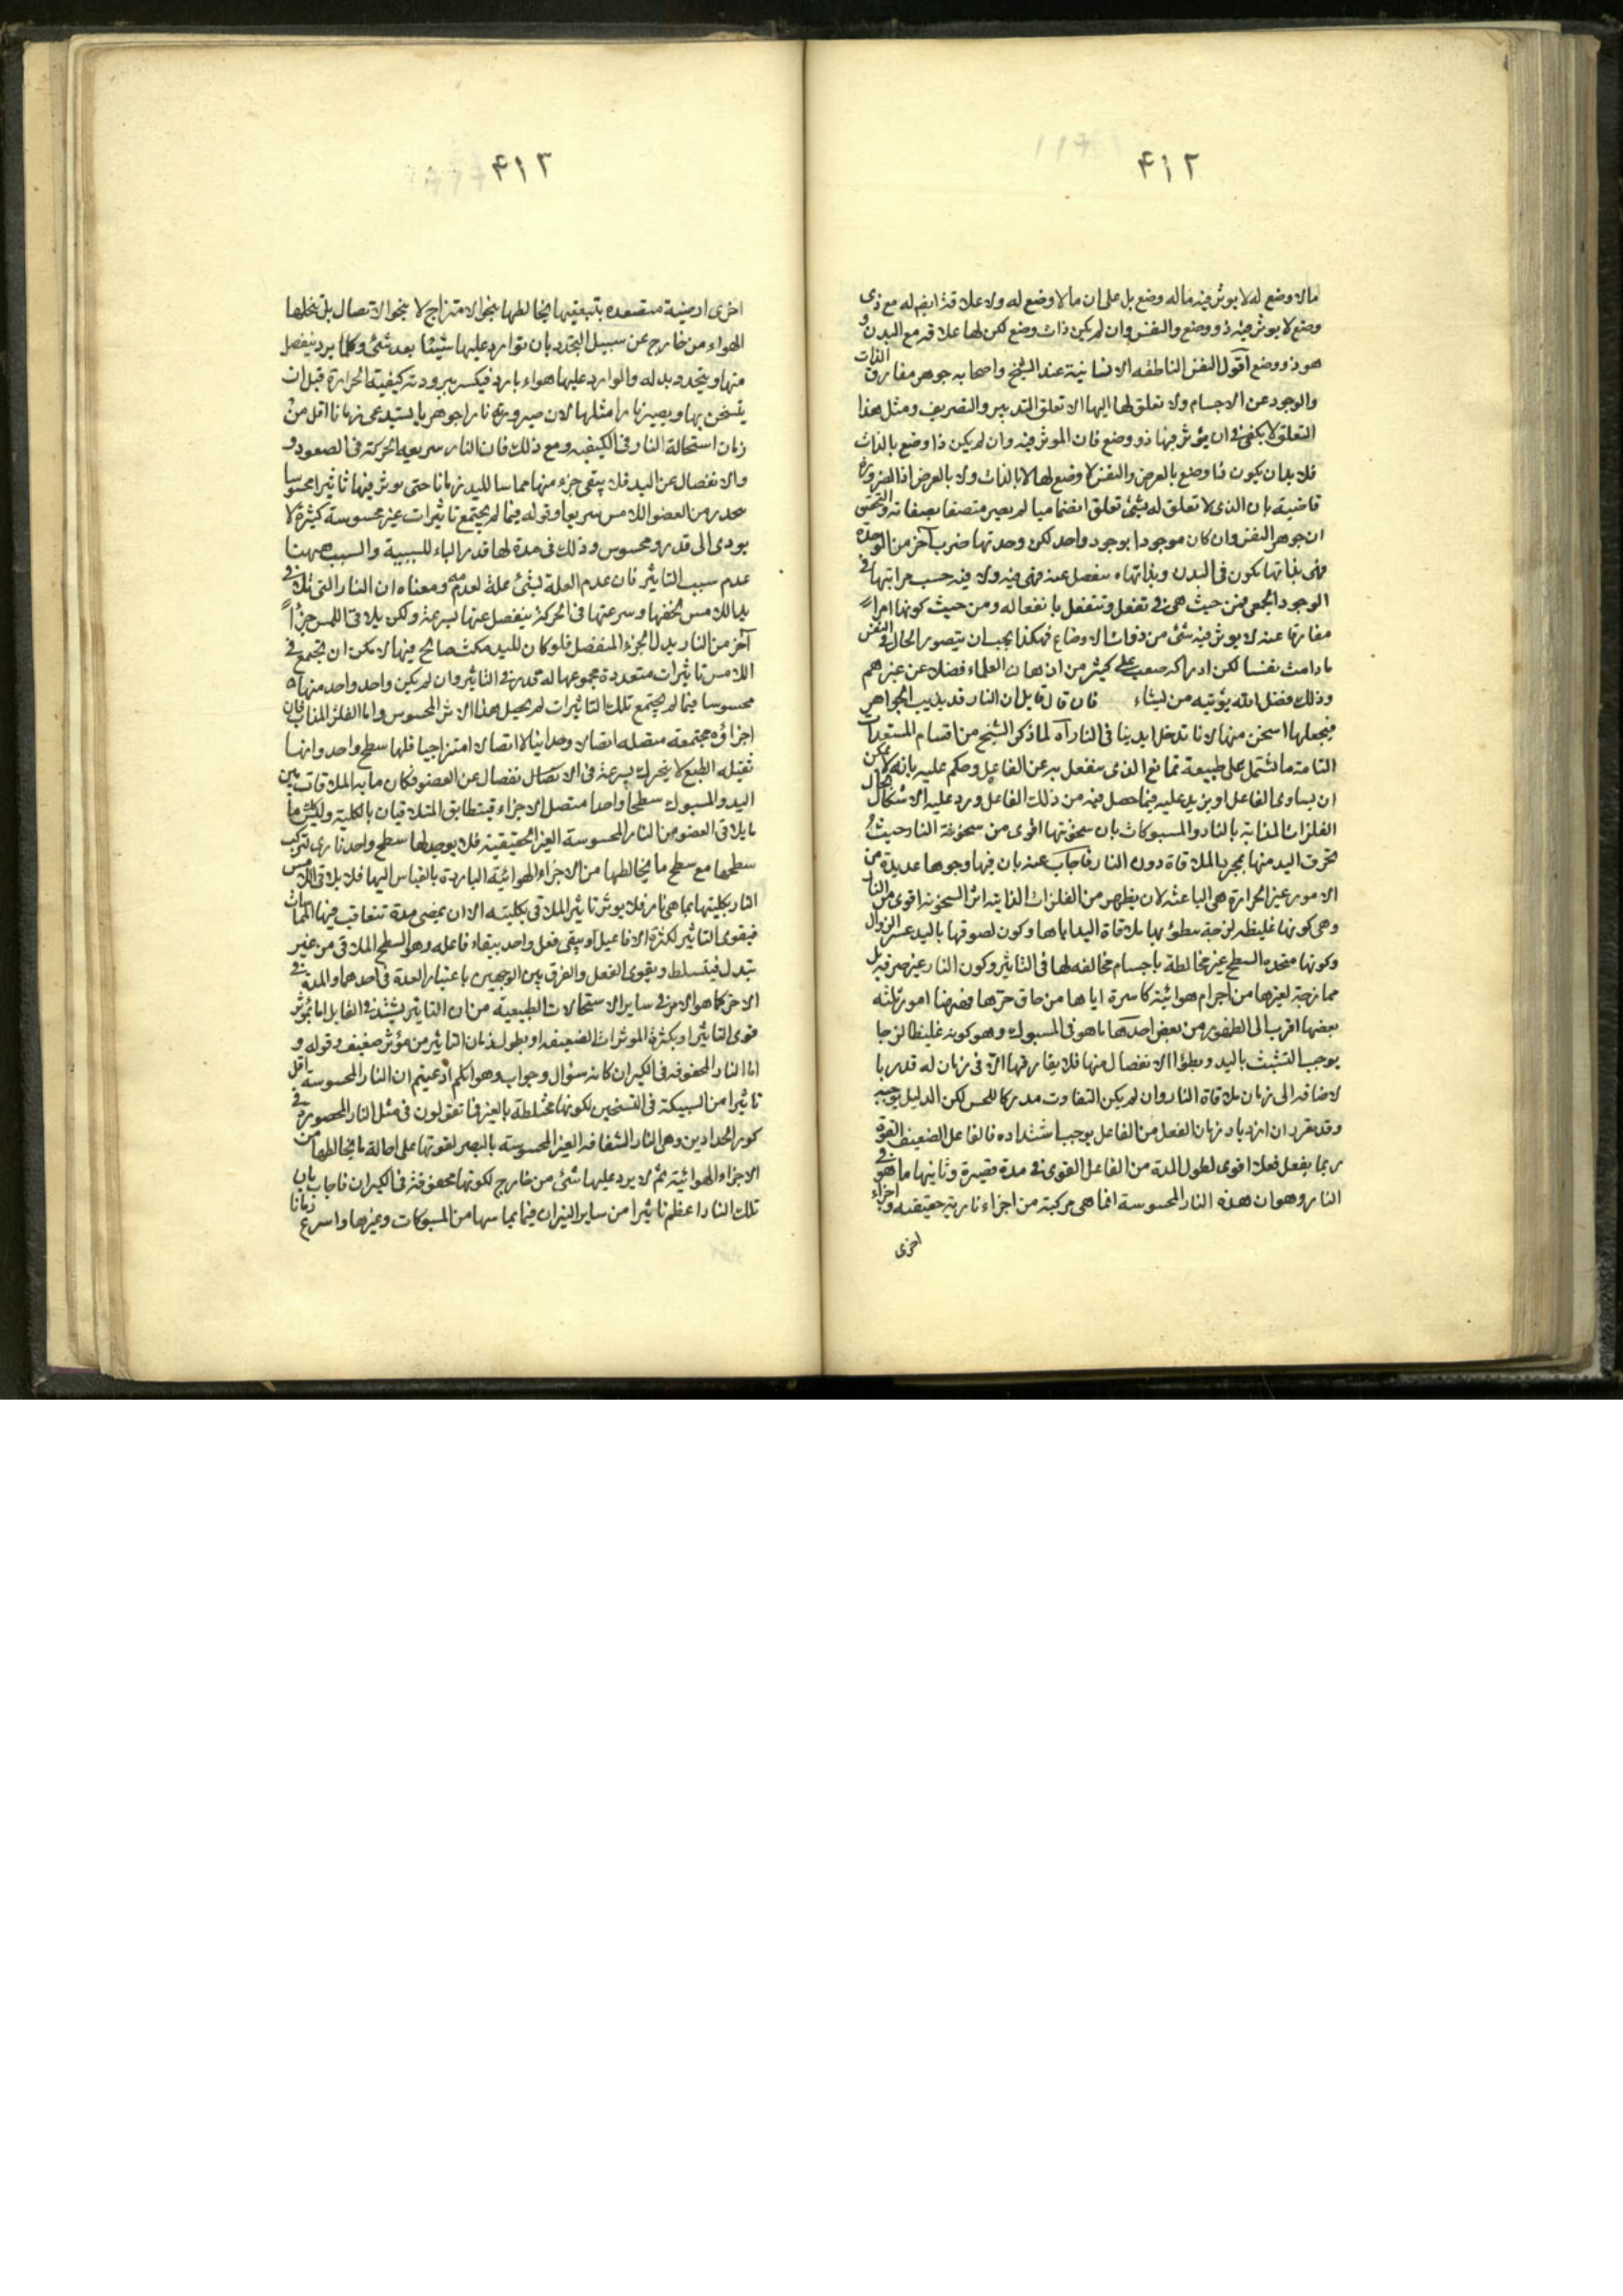 ۴۱۲
ما لا وضع له لا يوثر فيه ماله وضع بل على ان ما لا وضع له ولا علاقة ايضا له مع ذى
وضع لا يوثر فيه ذو وضع والنفس وان لم يكن ذات وضع لكن لها علاقه مع البدن و
هو ذو وضع اقول النفس الناطقه الانسانية عند الشيخ واصحابه جوهر مفارق الذات
والوجود عن الاجسام ولا تعلق لها اليها الا تعلق التدبير والتصريف ومثل هذا
التعلق لا يكفى فى ان يؤثر فيها ذو وضع فان الموثر فيه وان لم يكن ذا وضع بالذات
فلا بد ان يكون ذا وضع بالعرض والنفس لا وضع لها لا بالذات ولا بالعرض اذ الضرورة
قاضية بان الذى لا تعلق له بشئ تعلق انضماميا لم يصر متصفا بصفاته والتحقيق
ان جوهر النفس وان كان موجودا بوجود واحد لكن وحدتها ضرب آخر من الوحدة
فهى بذاتها يكون فى البدن وبذاتها منفصل عنه فهى فيه ولا فيه حسب مراتبها فى
الوجود الجمعى فمن حيث هى فى تفعل وتنفعل بانفعاله ومن حيث كونها امرا
مفارقا عنه لا يوثر فيه شئ من ذوات الاوضاع فهكذا يجب ان يتصور الحال فى النفس
ما دامت نفسا لكن ادراكه صعب على كثير من اذهان العلماء فضلا عن غيرهم
وذلك فضل الله يؤتيه من يشاء فان قال قايل ان النار قد يذيب الجواهر
فيجعلها اسخن منها لانا ندخل ايدينا فى النار آه لما ذكر الشيخ من اقسام المستعدات
التامة ما تشتمل على طبيعة تمانع الذى ينفعل به عن الفاعل وحكم عليه بانه لا يمكن
ان يساوى الفاعل او يزيد عليه فيما حصل فيه من ذلك الفاعل ورد عليه الاشكال بحال
الفلزات المذابة بالنار والمسبوكات بان سخونتها اقوى من سخونة النار حيث
تحرق اليد منها بمجرد الملاقاة دون النار فاجاب عنه بان فيها وجوها عديدة من
الامور غير الحرارة هى الباعثه لان يظهر من الفلزات الذائبه اثر السخونه اقوى من النار
وهى كونها غليظه لزجة بطؤ بها ملاقاة اليد اياها وكون لصوقها باليد عسر الزوال
وكونها متحده السطح غير مخالطة باجسام مخالفه لها فى التاثير وكون النار غير صرفه بل
ممازجة لغيرها من اجرام هوائية كاسرة اياها من حاق حرها فهيهنا امور ثلثه
بعضها اقرب الى الظهور من بعض احدها ما هو فى المسبوك وهو كونه غليظا لزجا
يوجب التشبث باليد وبطؤا الانفصال منها فلا يفارقها الا فى زمان له قدر بالا
ضافه الى زمان ملاقاة النار وان لم يكن التفاوت مدركا للحس لكن الدليل يوجبه
وقد تقرر ان ازدياد زمان الفعل من الفاعل يوجب اشتداده فالفاعل الضعيف القوة
ربما يفعل فعلا اقوى لطول المدة من الفاعل القوى فى مدة قصيرة وثانيها ما هو فى
النار وهو ان هذه النار المحسوسة انما هى مركبة من اجزاء نارية حقيقيه واجزاء
اخرى
۴۱۳
اخرى ارضية متصعده بتبعيتها يخالطها بنحو الامتزاج لا بنحو الاتصال بل يتخللها
الهواء من خارج عن سبيل التجدد بان توارد عليها شيئا بعد شئ وكلما يرد ينفصل
منها ويتجدد بدله والوارد عليها هواء بارد فيكسر ببرودته كيفية الحرارة قبل ان
يتسخن بها ويصير نارا مثلها لان صيرورته نارا جوهريا يستدعى زمانا اقل من
زمان استحالة النار فى الكيفيه ومع ذلك فان النار سريعه الحركة فى الصعود و
والانفصال عن اليد فلا يبقى جزء منها مماسا لليد زمانا حتى يوثر فيها تاثيرا محسوسا
بحدر من العضو اللامس سريعا وقوله فيما لم يجتمع تاثيرات غير محسوسة كثيرة لا
يودى الى قدر ومحسوس وذلك فى مدة لها قدر الباء للسببية والسبب هيهنا
عدم سبب التاثير فان عدم العلة لشئ علة لعدمه ومعناه ان النار التى تلاقى
يد اللامس لخفتها وسرعتها فى الحركة ينفصل عنها بسرعة ولكن يلاقى اللمس جزأ
آخر من النار بدل الجزء المنفصل فلو كان لليد مكث صالح فيها لا مكن ان يجتمع فى
اللامس تاثيرات متعددة مجموعها له قدر فى التاثير وان لم يكن واحد واحد منها
محسوسا فيما لم يجتمع تلك التاثيرات لم يحصل هذا الاثر المحسوس واما الفلز المذاب فان
اجزاؤه مجتمعة متصله اتصالا وحدانيا لا اتصالا امتزاجيا فلها سطح واحد وانها
ثقيله الطبع لا يتحرك بسرعة فى الاتصال نفصال عن العضو فكان ما به الملاقات بين
اليد والمسبوك سطحا واحدا متصل الاجزاء فيتطابق المتلاقيان بالكلية وليس ما
ما يلاقى العضو من النار المحسوسة الغير الحقيقية فلا يوجد لها سطح واحد نارى لتركب
سطحها مع سطح ما يخالطها من الاجزاء الهوائية الباردة بالقياس اليها فلا يلاقى اللامس
النار بكليتها بما هى نار فلا يوثر تاثير الملاقى بكليته الا ان يمضى مدة تتعاقب فيها المماسات
فيقوى التاثير لكثرة الافاعيل او يبقى فعل واحد ببقاء فاعله وهو السطح الملاقى من غير
تبدل فيتسلط ويقوى الفعل والفرق بين الوجهين باعتبار العدة فى احدهما والمدة فى
الاخر كما هو الامر فى ساير الاستحالات الطبيعية من ان التاثير يشتد فى القابل اما بمؤثر
قوى التاثير او بكثرة الموثرات الضعيفه او بطول زمان التاثير من مؤثر ضعيف وقوله و
اما النار المحفوفه فى الكيران كانه سؤال وجواب وهو انكم ادعيتم ان النار المحسوسه اقل
تاثيرا من السبيكة فى التسخين لكونها مختلطة بالغير فما تقولون فى مثل النار المحصورة فى
كور الحدادين وهى النار الشفافه الغير المحسوسه بالبصر لقوتها على احالة ما يخالطها من
الاجزاء الهوائية ثم لا يرد عليها شئ من خارج لكونها محفوفة فى الكيران فاجاب بان
تلك النار اعظم تاثيرا من ساير النيران فيما يماسها من المسبوكات وغيرها واسرع زمانا